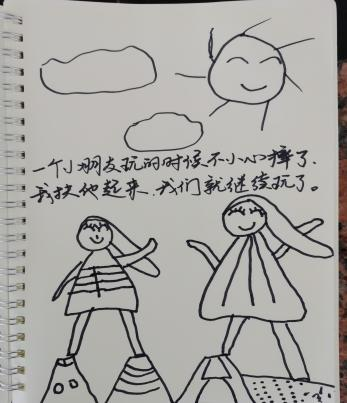 一个小朋友玩的时候不小心摔了.
我扶他起来.我们就继续玩了。